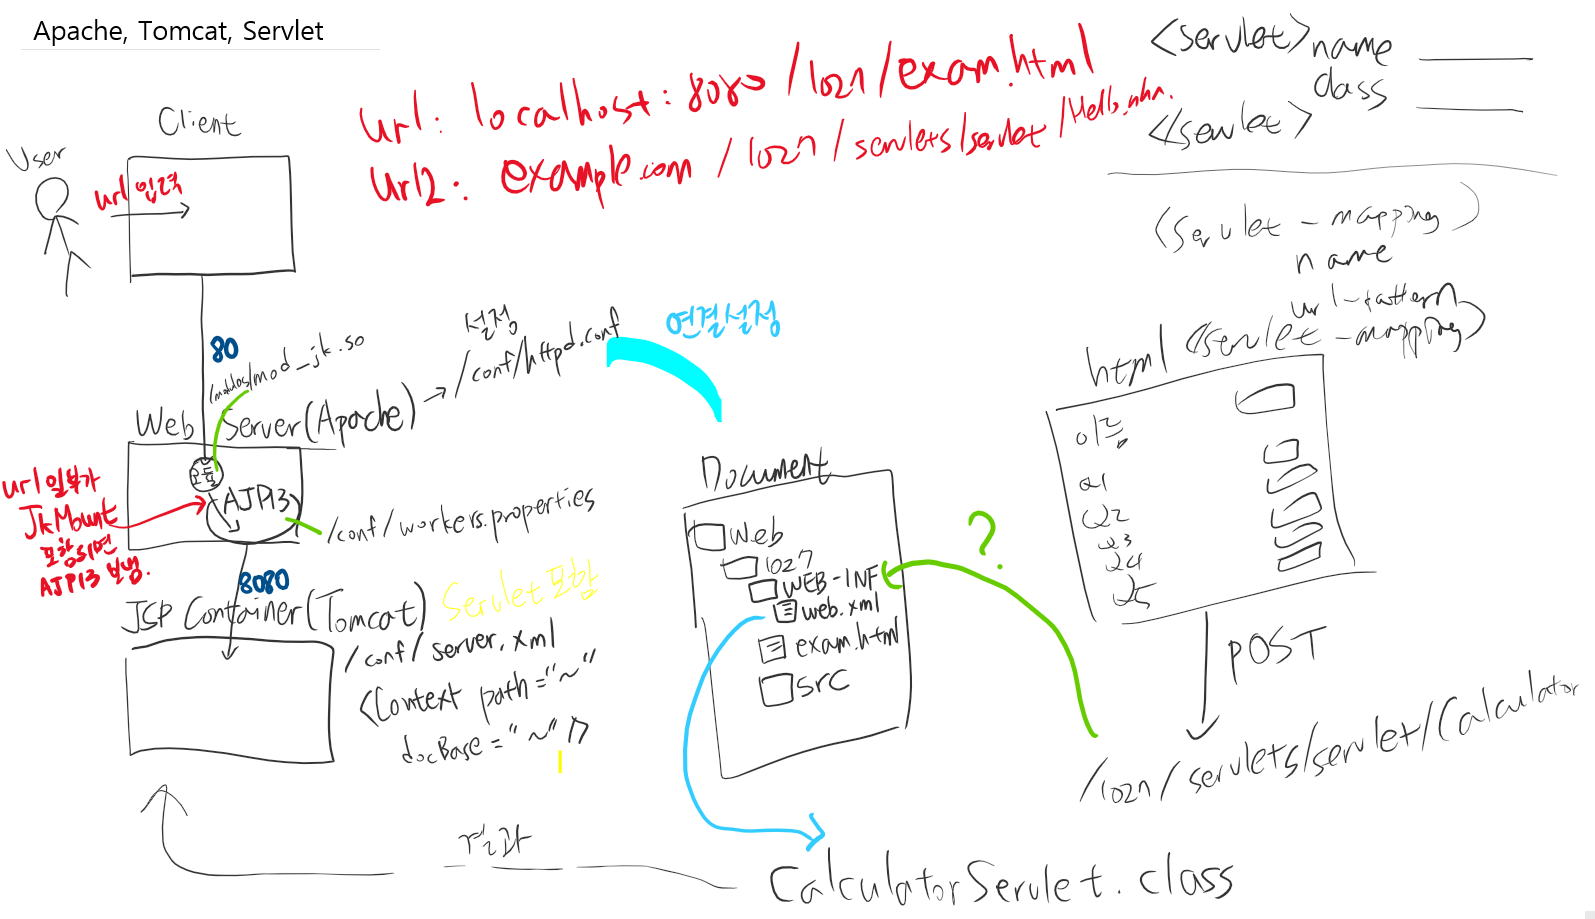 Apache, Tomcat, Servlet
url: localhost:8080/1027/exam.html
url2: example.com/1027/servlets/servlet/Hello.nhn.
<servlet>
name
class
</servlet>
<servlet-mapping>
name
url-pattern
<servlet-mapping>
Client
User
url 입력
80
/modules/mod_jk.so
설정
/conf/httpd.conf
연결설정
Web Server(Apache)
모듈
AJP13
url 일부가
JkMount
포함되면
AJP13 보냄.
/conf/workers.properties
8080
JSP Container(Tomcat)
Servlet 포함
/conf/server.xml
<Context path="~"
docBase="~" />
Document
Web
1027
WEB-INF
web.xml
exam.html
src
?
html
이름
Q1
Q2
Q3
Q4
Q5
POST
/1027/servlets/servlet/Calculator
결과
CalculatorServlet.class